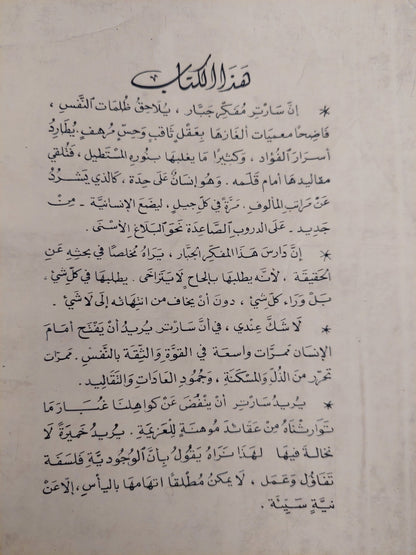 هَذَا الكتَاب
* إنَّ سَارْتر مُفكِّر جَبَّار ، يُلَاحِقُ ظلمَات النَّفْسِ ،
فَاضِحًا معميَات ألغازهَا بِعَقْلٍ ثَاقبٍ وَحِسٍّ مُرهَفٍ . يُطَارِدُ
أسرَارَ الفُؤَاد ، وَكَثيرًا مَا يغلبهَا بنُورهِ المُسْتطيل ، فتُلقي
مقَاليدهَا أمَامَ قَلَمه . وَهُو إنسَانٌ عَلَى حِدَة ، كَالذي يَشرُدُ
عَنْ مَراتِب المألُوف . مَرَّةً في كُلّ جيلٍ ، ليَضَعَ الإنسَانيَّة - مِنْ
جَديد - عَلَى الدرُوب الصَّاعدَة نحْوَ البَلَاغ الأسْنَى .
* إنَّ دَارسَ هَذَا المفكّر الجبَّار ، يَراهُ مُخْلصًا في بحثِهِ عَنِ
الحَقيقَة ، لأنَّهُ يطلبهَا بإلحَاحٍ لَا يَتَرَاخَى . يطلبهَا في كلّ شَيْءٍ ،
بَلْ وَرَاءَ كلّ شَيْءٍ ، دونَ أنْ يخَافَ من انتهَائه إلَى لَا شَيْءَ .
* لَا شَكَّ عِنْدي ، في أنَّ سَارْتر يُريدُ أنْ يَفْتَحَ أمَامَ
الإنسَان ممرَّات وَاسعَة في القوَّة وَالثِّقَة بالنَّفْسِ . ممرَّات
تحرّر منَ الذُلِّ وَالمَسْكنَة ، وَجُمُودِ العَادَاتِ وَالتَّقَاليد .
* يُريدُ سَارْتر أنْ ينْفُضَ عَنْ كوَاهلنَا غُبَارَ مَا
تَوَارثنَاهُ مِنْ عقَائد مُوهنَةٍ للعَزيمَة . يُريدُ خَميرَةً لَا
نخَالَةَ فيهَا لهَذَا نَرَاهُ يَقُولُ بِأنَّ الوُجُوديَّة فَلسَفَة
تَفَاؤُل وَعَمَل ، لَا يمكنُ مُطْلَقًا اتهَامهَا باليَأْسِ ، إلَّا عَنْ
نيَّةٍ سَيِّئَة .